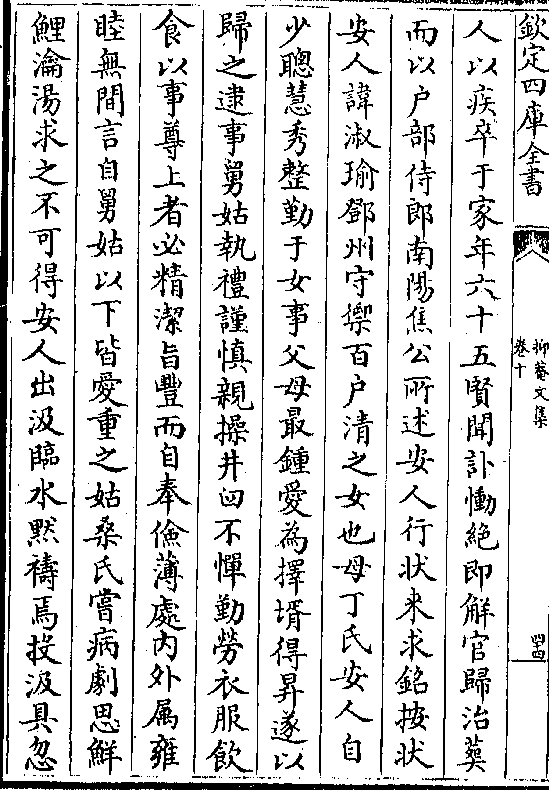 欽定四庫全書
抑菴文集
卷十
四十四
人以疾卒于家年六十五賢聞訃慟絶即解官歸治葬
而以户部侍郎南陽焦公所述安人行状来求銘按状
安人諱淑瑜鄧州守禦百户清之女也母丁氏安人自
少聰慧秀整勤于女事父母最鍾愛為擇壻得昇遂以
歸之逮事舅姑執禮謹慎親操井臼不憚勤勞衣服飲
食以事尊上者必精潔旨豐而自奉儉薄處内外属雍
睦無間言自舅姑以下皆愛重之姑桑氏嘗病劇思鮮
鯉瀹湯求之不可得安人出汲臨水黙禱焉投汲具忽